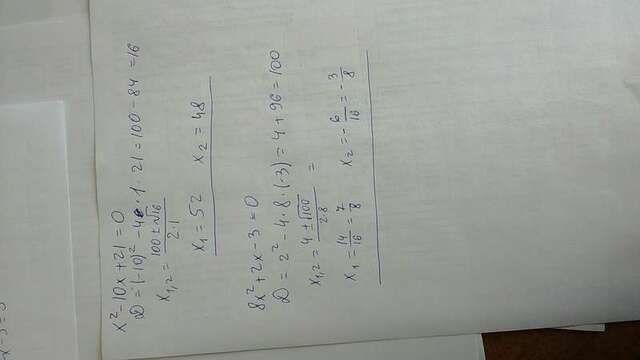 x² - 10x + 21 = 0
D = (-10)² - 4 · 1 · 21 = 100 - 84 = 16
x₁,₂ = (100 ± √16) / (2·1)
x₁ = 52   x₂ = 48
8x² + 2x - 3 = 0
D = 2² - 4 · 8 · (-3) = 4 + 96 = 100
x₁,₂ = (4 ± √100) / (2·8) =
x₁ = 14/16 = 7/8   x₂ = -6/16 = -3/8